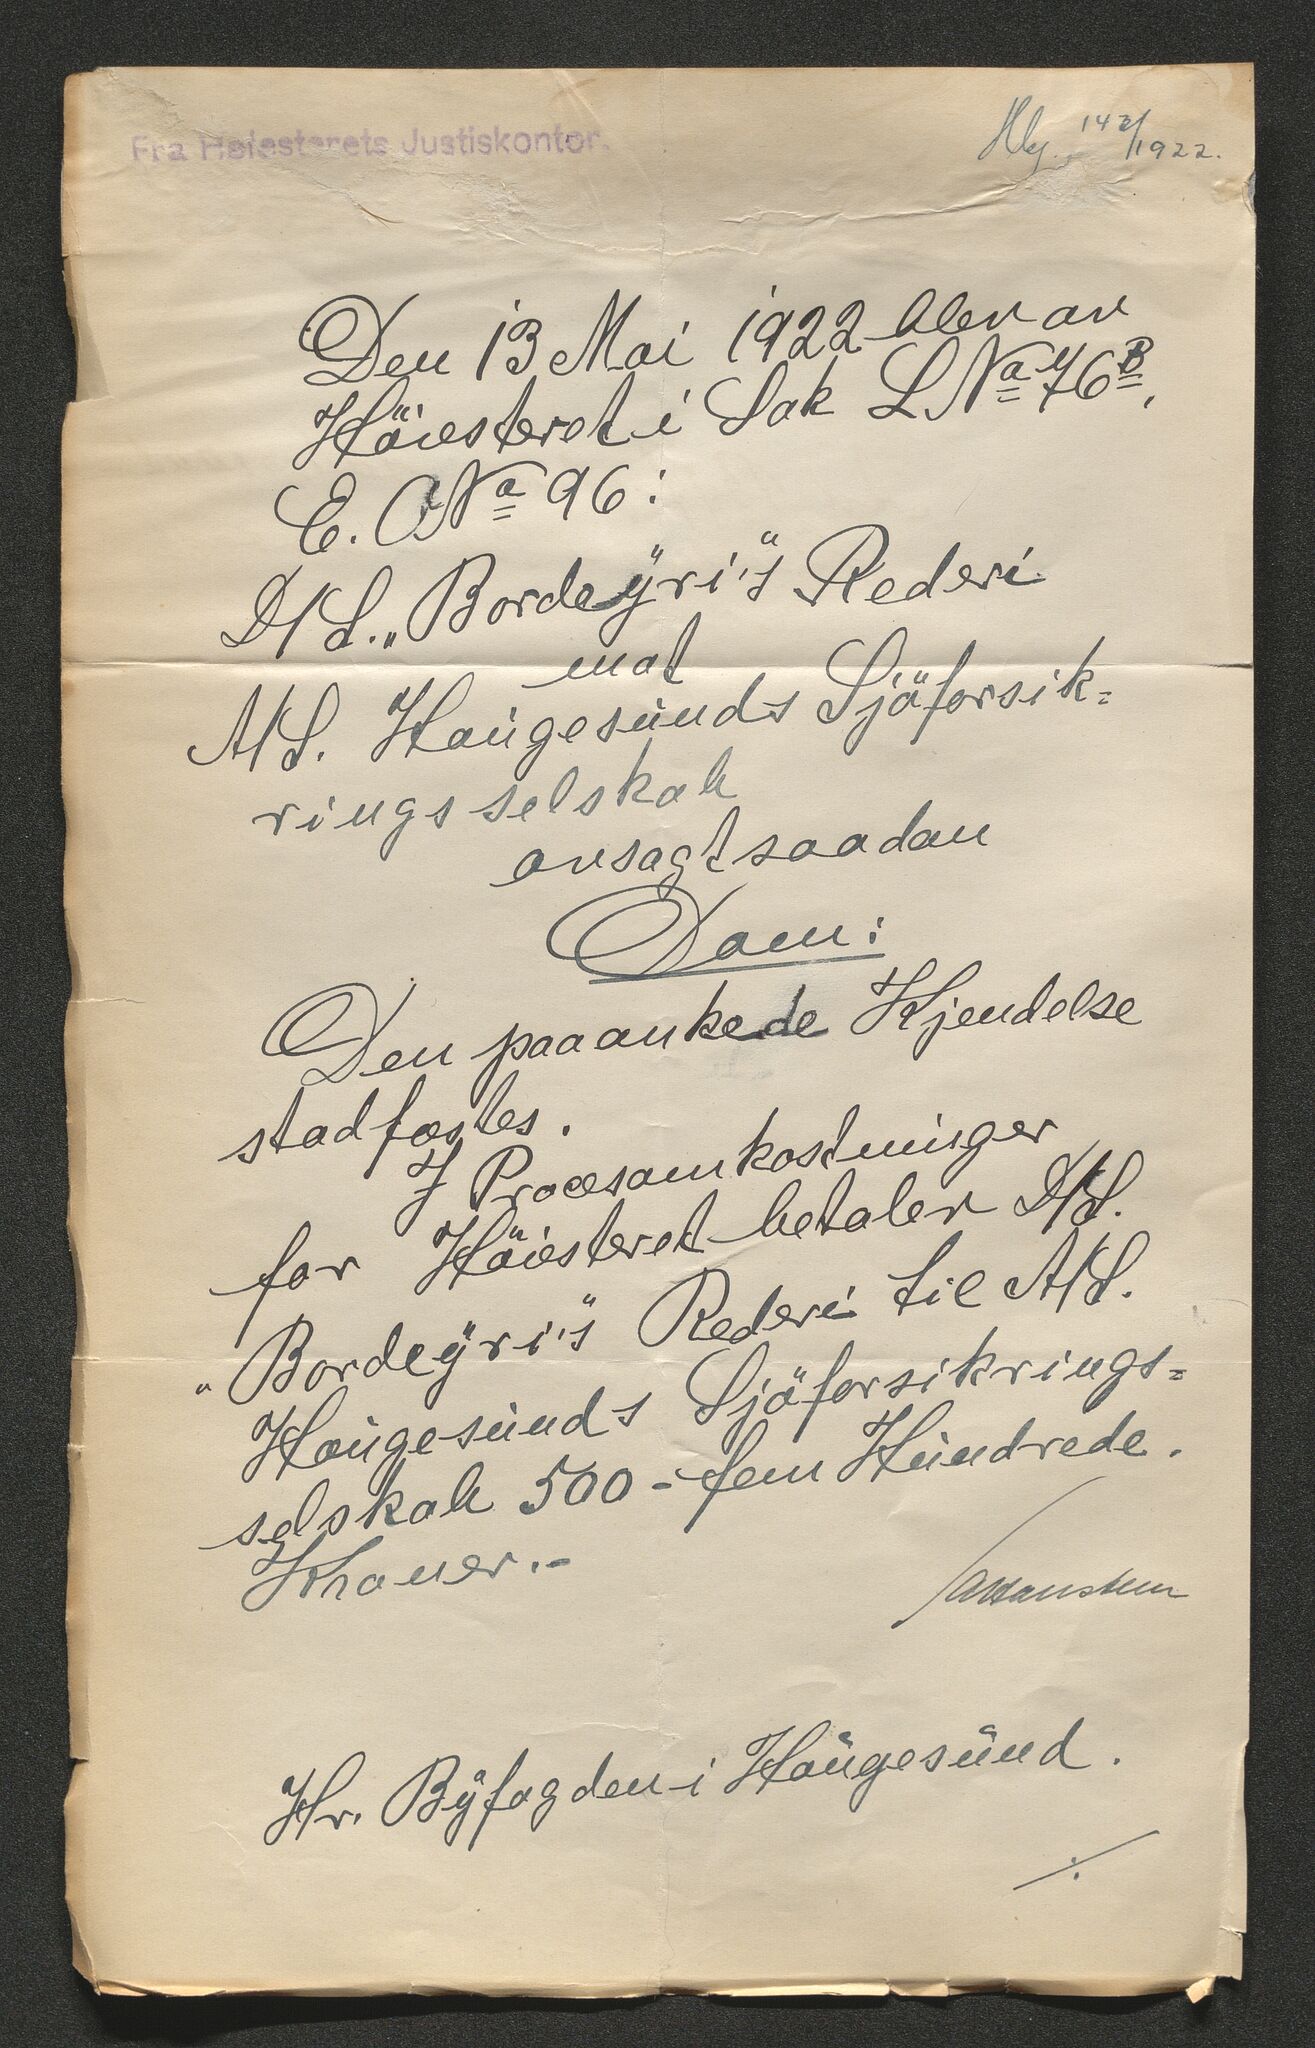 Fra Høiesterets Justiskontor.
143/1922.
Den 13 Mai 1922 blev av
Höiesteret i Sak L No 76B,
E. No 96:
D/S. „Bordeyri"s Rederi
mot
A/S. Haugesunds Sjöforsik-
ringsselskab
avsagt saadan
Dom:
Den paaankede Kjendelse
stadfæstes.
I Procesomkostninger
for Höiesteret betaler D/S.
„Bordeyri"s Rederi til A/S.
Haugesunds Sjöforsikrings-
selskab 500 - fem Hundrede.
Kroner.-
Hr. Byfogden i Haugesund.